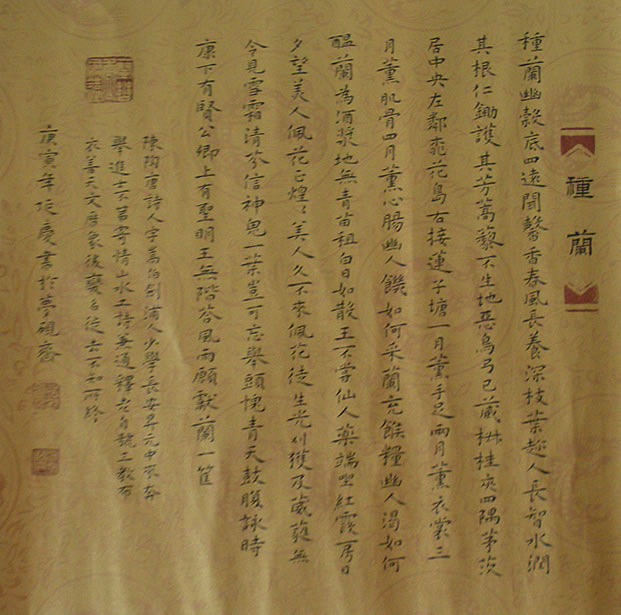 種蘭
種蘭幽穀底四遠聞馨香春風長養深枝葉趁人長智水潤
其根仁鋤護其芳蒿藜不生地惡鳥弓已藏椒桂夾四隅茅茨
居中央左鄰桃花島右接蓮子塘一月薰手足兩月薰衣裳三
月薰肌骨四月薰心腸幽人饑如何采蘭充餱糧幽人渴如何
醞蘭為酒漿地無青苗租白日如散王不嘗仙人藥端坐紅霞房日
夕望美人佩花正煌〻美人久不來佩花徒生光刈獲及葳蕤無
令見雪霜清芬信神鬼一葉豈可忘舉頭愧青天鼓腹詠時
康下有賢公卿上有聖明王無階答風雨願獻蘭一筐
陳陶唐詩人字嵩伯劍浦人少學長安昇元中來奔
舉進士不第寄情山水工詩兼通釋老自號三教布
衣善天文曆象後變名從去不知所終
庚寅年慶書於夢硯齋